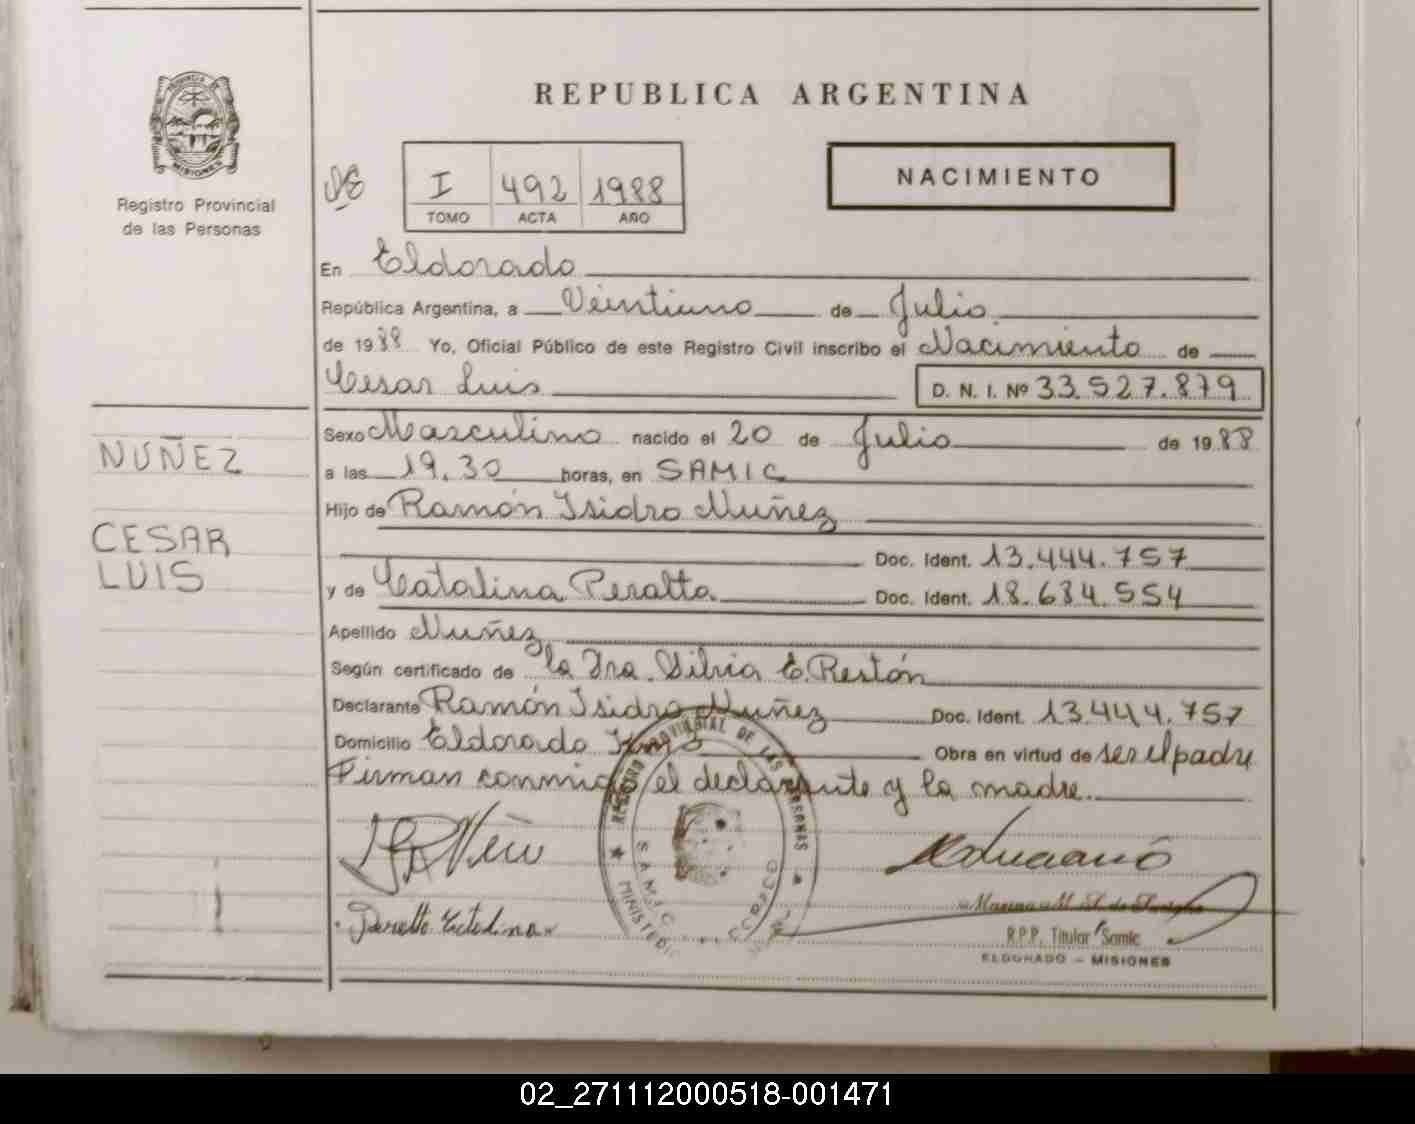 REPUBLICA ARGENTINA
PROVINCIA DE
MISIONES
Registro Provincial
de las Personas
I 492 1988
TOMO ACTA AÑO
NACIMIENTO
En Eldorado
República Argentina, a Veintiuno de Julio
de 1988 Yo, Oficial Público de este Registro Civil inscribo el Nacimiento de
Cesar Luis
D. N. I. Nº 33.527.879
NUÑEZ
CESAR
LUIS
Sexo Masculino nacido el 20 de Julio de 1988
a las 19.30 horas, en SAMIC
Hijo de Ramón Isidro Nuñez
Doc. Ident. 13.444.757
y de Catalina Peralta Doc. Ident. 18.684.554
Apellido Nuñez
Según certificado de la Dra. Silvia E. Restón
Declarante Ramón Isidro Nuñez Doc. Ident. 13.444.757
Domicilio Eldorado Obra en virtud de ser el padre
Firman conmigo el declarante y la madre.
REGISTRO PROVINCIAL DE LAS PERSONAS
S.A.M.I.C.
Peralta Catalina
R.P.P. Titular Samic
ELDORADO - MISIONES
02_271112000518-001471